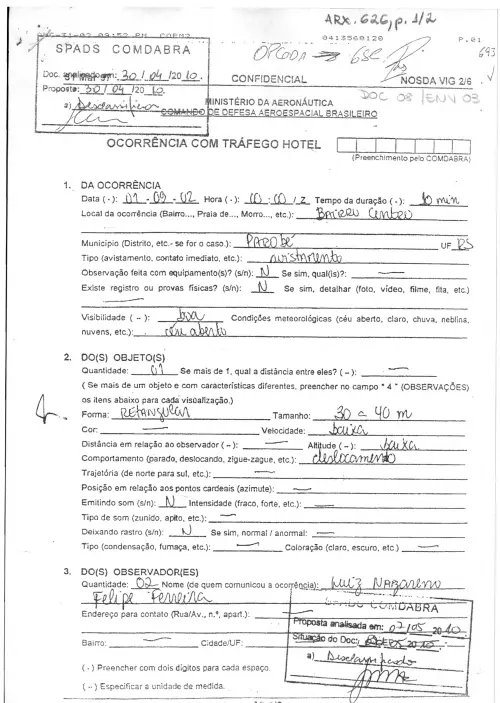 ARX. 626, p. 1/2
0413560120 P.01
693
SPADS COMDABRA
Doc. analisado em: 30 / 04 /20 10.
Proposta: 30 / 04 /20 10.
a) Desclassifico
CONFIDENCIAL
NOSDA VIG 2/6
DOC 08 /ENV 03
MINISTÉRIO DA AERONÁUTICA
COMANDO DE DEFESA AEROESPACIAL BRASILEIRO
OCORRÊNCIA COM TRÁFEGO HOTEL
(Preenchimento pelo COMDABRA)
1. DA OCORRÊNCIA
Data ( - ): 01 - 09 - 02 Hora ( - ): 00 : 00 / Z Tempo da duração ( - ): 10 min
Local da ocorrência (Bairro..., Praia de..., Morro..., etc.): Bairro Centro
Município (Distrito, etc.- se for o caso.): PAROBÉ UF RS
Tipo (avistamento, contato imediato, etc.): avistamento
Observação feita com equipamento(s)? (s/n): N Se sim, qual(is)?: —
Existe registro ou provas físicas? (s/n): N Se sim, detalhar (foto, vídeo, filme, fita, etc.)
—
Visibilidade ( ~ ): boa Condições meteorológicas (céu aberto, claro, chuva, neblina,
nuvens, etc.): céu aberto
2. DO(S) OBJETO(S)
Quantidade: 01 Se mais de 1, qual a distância entre eles? ( ~ ): —
( Se mais de um objeto e com características diferentes, preencher no campo " 4 " (OBSERVAÇÕES)
os itens abaixo para cada visualização.)
Forma: RETANGULAR Tamanho: 30 a 40 m
Cor: — Velocidade: baixa
Distância em relação ao observador ( ~ ): — Altitude ( ~ ): baixa
Comportamento (parado, deslocando, zigue-zague, etc.): deslocamento
Trajetória (de norte para sul, etc.): —
Posição em relação aos pontos cardeais (azimute): —
Emitindo som (s/n): N Intensidade (fraco, forte, etc.): —
Tipo de som (zunido, apito, etc.): —
Deixando rastro (s/n): N Se sim, normal / anormal: —
Tipo (condensação, fumaça, etc.): — Coloração (claro, escuro, etc.) —
3. DO(S) OBSERVADOR(ES)
Quantidade: 02 Nome (de quem comunicou a ocorrência): Luiz Nazareno
Felipe Ferreira
Endereço para contato (Rua/Av., n.º, apart.):
Bairro: — Cidade/UF: —
SPADS COMDABRA
Proposta analisada em: 07 / 05 /20 10
Situação do Doc:
a) Desclassificado
( - ) Preencher com dois dígitos para cada espaço.
( ~ ) Especificar a unidade de medida.